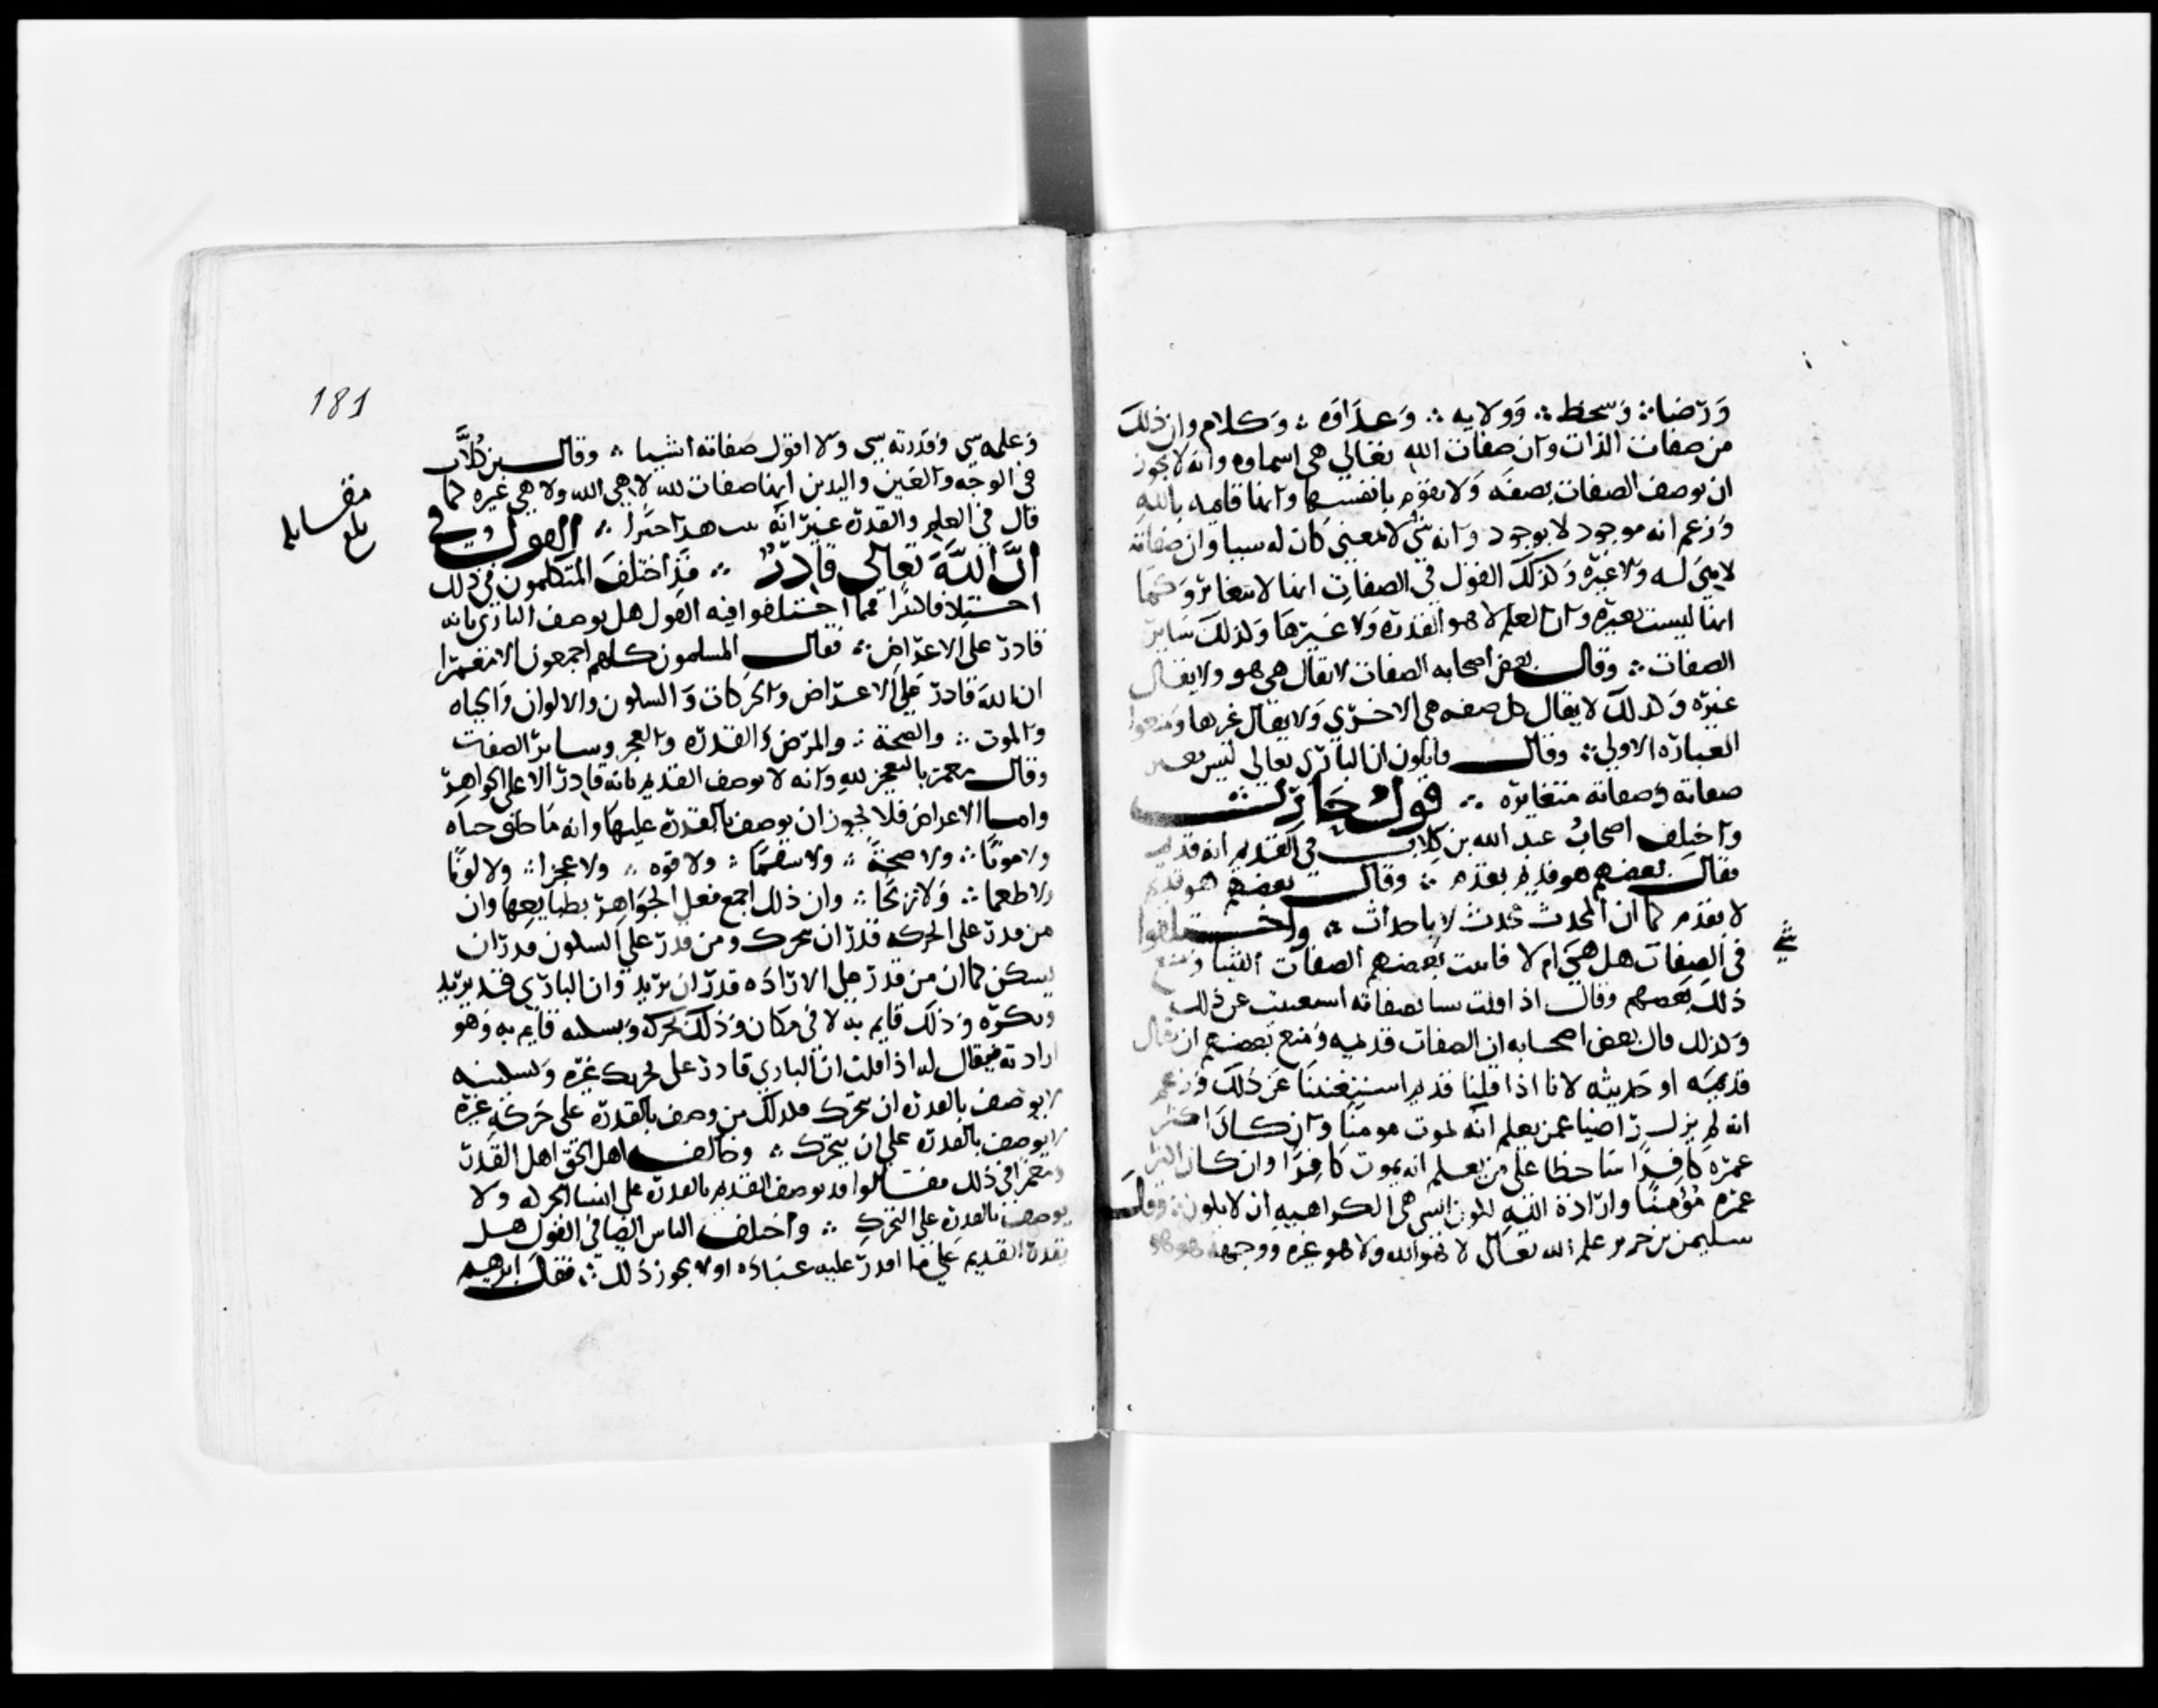 ورضا وسخط وولايه وعداوه وكلام وان ذلك
من صفات الذات وان صفات الله تعالى هى اسماوه وانه لا يجوز
ان توصف الصفات بصفه ولا تقوم بانفسها وانها قايمه بالله
وزعم انه موجود لا بوجود وانه شى لا لمعنى كان له سببا وان صفاته
لا هى له ولا غيره وكذلك القول فى الصفات انها لا تتغاير وكما
انها ليست بغيره وان العلم لا هو القدره ولا غيرها وكذلك ساير
الصفات وقال بعض اصحابه الصفات لا تقال هى هو ولا يقال
غيره وكذلك لا يقال كل صفه هى الاخرى ولا يقال غيرها ومنعوا
العباره الاولى وقال قايلون ان البارى تعالى ليس بغير
صفاته وصفاته متغايره قول حارث
واختلف اصحاب عبد الله بن كلاب فى القديم انه قديم
فقال بعضهم هو قديم بقدم وقال بعضهم هو قديم
لا بقدم كما ان المحدث محدث لا باحداث واختلفوا
فى الصفات هل هى ام لا فاثبت بعضهم الصفات اشيا ومنع
شي
ذلك بعضهم وقال اذا قلت شيا بصفاته استغنيت عن ذلك
وكذلك قال بعض اصحابه ان الصفات قديمه ومنع بعضهم ان يقال
قديمه او حديثه لانا اذا قلنا قديم استغنينا عن ذلك وزعم
انه لم يزل راضيا عمن يعلم انه يموت مومنا وان كان اكثر
عمره كافرا ساخطا على من يعلم انه يموت كافرا وان كان اكثر
عمره مؤمنا وارادة الله لكون الشى هى الكراهيه ان لا يكون وقال
سليمن بن جرير علم الله تعالى لا هو الله ولا هو غيره ووجهه هو هو
181
وعلمه شى وقدرته شى ولا اقول صفاته اشيا وقال بن كلاب
فى الوجه والعين واليدين انها صفات لله لا هى الله ولا هى غيره كما
قال فى العلم والقدره غير انه هذا خبرا القول فى
بلغ مقابله
ان الله تعالى قادر قد اختلف المتكلمون فى ذلك
اختلافا كثيرا فمما اختلفوا فيه القول هل يوصف البارى بانه
قادر على الاعراض فقال المسلمون كلهم اجمعون الا معمرا
ان الله قادر على الاعراض والحركات والسكون والالوان والحياه
والموت والصحة والمرض والقدره والعجز وساير الصفات
وقال معمر بالتعجيز لله وانه لا يوصف القديم بانه قادر الا على الجواهر
واما الاعراض فلا يجوز ان يوصف بالقدره عليها وانه ما خلق حياه
ولا موتا ولا صحة ولا سقما ولا قوه ولا عجزا ولا لونا
ولا طعما ولا ريحا وان ذلك اجمع فعل الجواهر بطبايعها وان
من قدر على الحركه قدر ان يتحرك ومن قدر على السكون قدر ان
يسكن كما ان من قدر على الاراده قدر ان يريد وان البارى قد يريد
ويكره وذلك قايم به لا فى مكان وذلك تحركه وتسكنه قايم به وهو
ارادته فيقال له اذا قلت ان البارى قادر على تحريك غيره وتسكينه
لا يوصف بالقدره ان يتحرك فلذلك من وصف بالقدره على حركه غيره
لا يوصف بالقدره على ان يتحرك وخالف اهل الحق اهل القدر
ومعمرا فى ذلك فقالوا قد يوصف القديم بالقدره على انشا الحركه ولا
يوصف بالقدره على التحرك واختلف الناس ايضا فى القول هل
يقدر القديم على ما اقدر عليه عباده او لا يجوز ذلك فقال ابرهيم